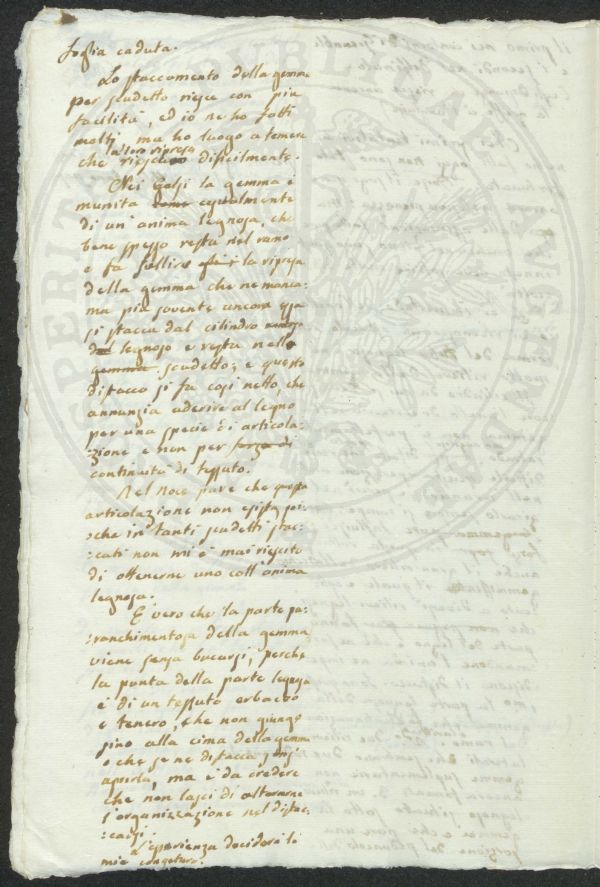 foglia caduta.
Lo staccamento della gemma
per scudetto riesce con più
facilità, ed io ne ho fatti
molti ma ho luogo a temere
la loro ripresa
che riesca difficilmente.
Nei Gelsi la gemma è
munita come egualmente
di un' anima legnosa, che
bene spesso resta nel ramo
e fa fallire la ripresa
della gemma che ne manca:
ma più sovente ancora essa
si stacca dal cilindro
del legnoso e resta nello
gemma scudetto; e questo
distacco si fa così netto, che
annunzia aderire al legno
per una specie di articola:
:zione e non per forza di
continuità di tessuto.
Nel Noce pare che questa
articolazione non esista poi:
:che in tanti scudetti stac:
:cati non mi è mai riescito
di ottenerne uno coll' anima
legnosa.
È vero che la parte pa:
:ranchimentosa della gemma
viene senza bucarsi, perché
la punta della parte legnosa
è di un tessuto erbaceo
e tenero, che non giunge
sino alla cima della gemma
o che se ne distacca senza
aprirla, ma è da credere
che non lasci di alterarne
l'organizzazione nel distac:
:carsi.
L'esperienza deciderà le
mie congetture.